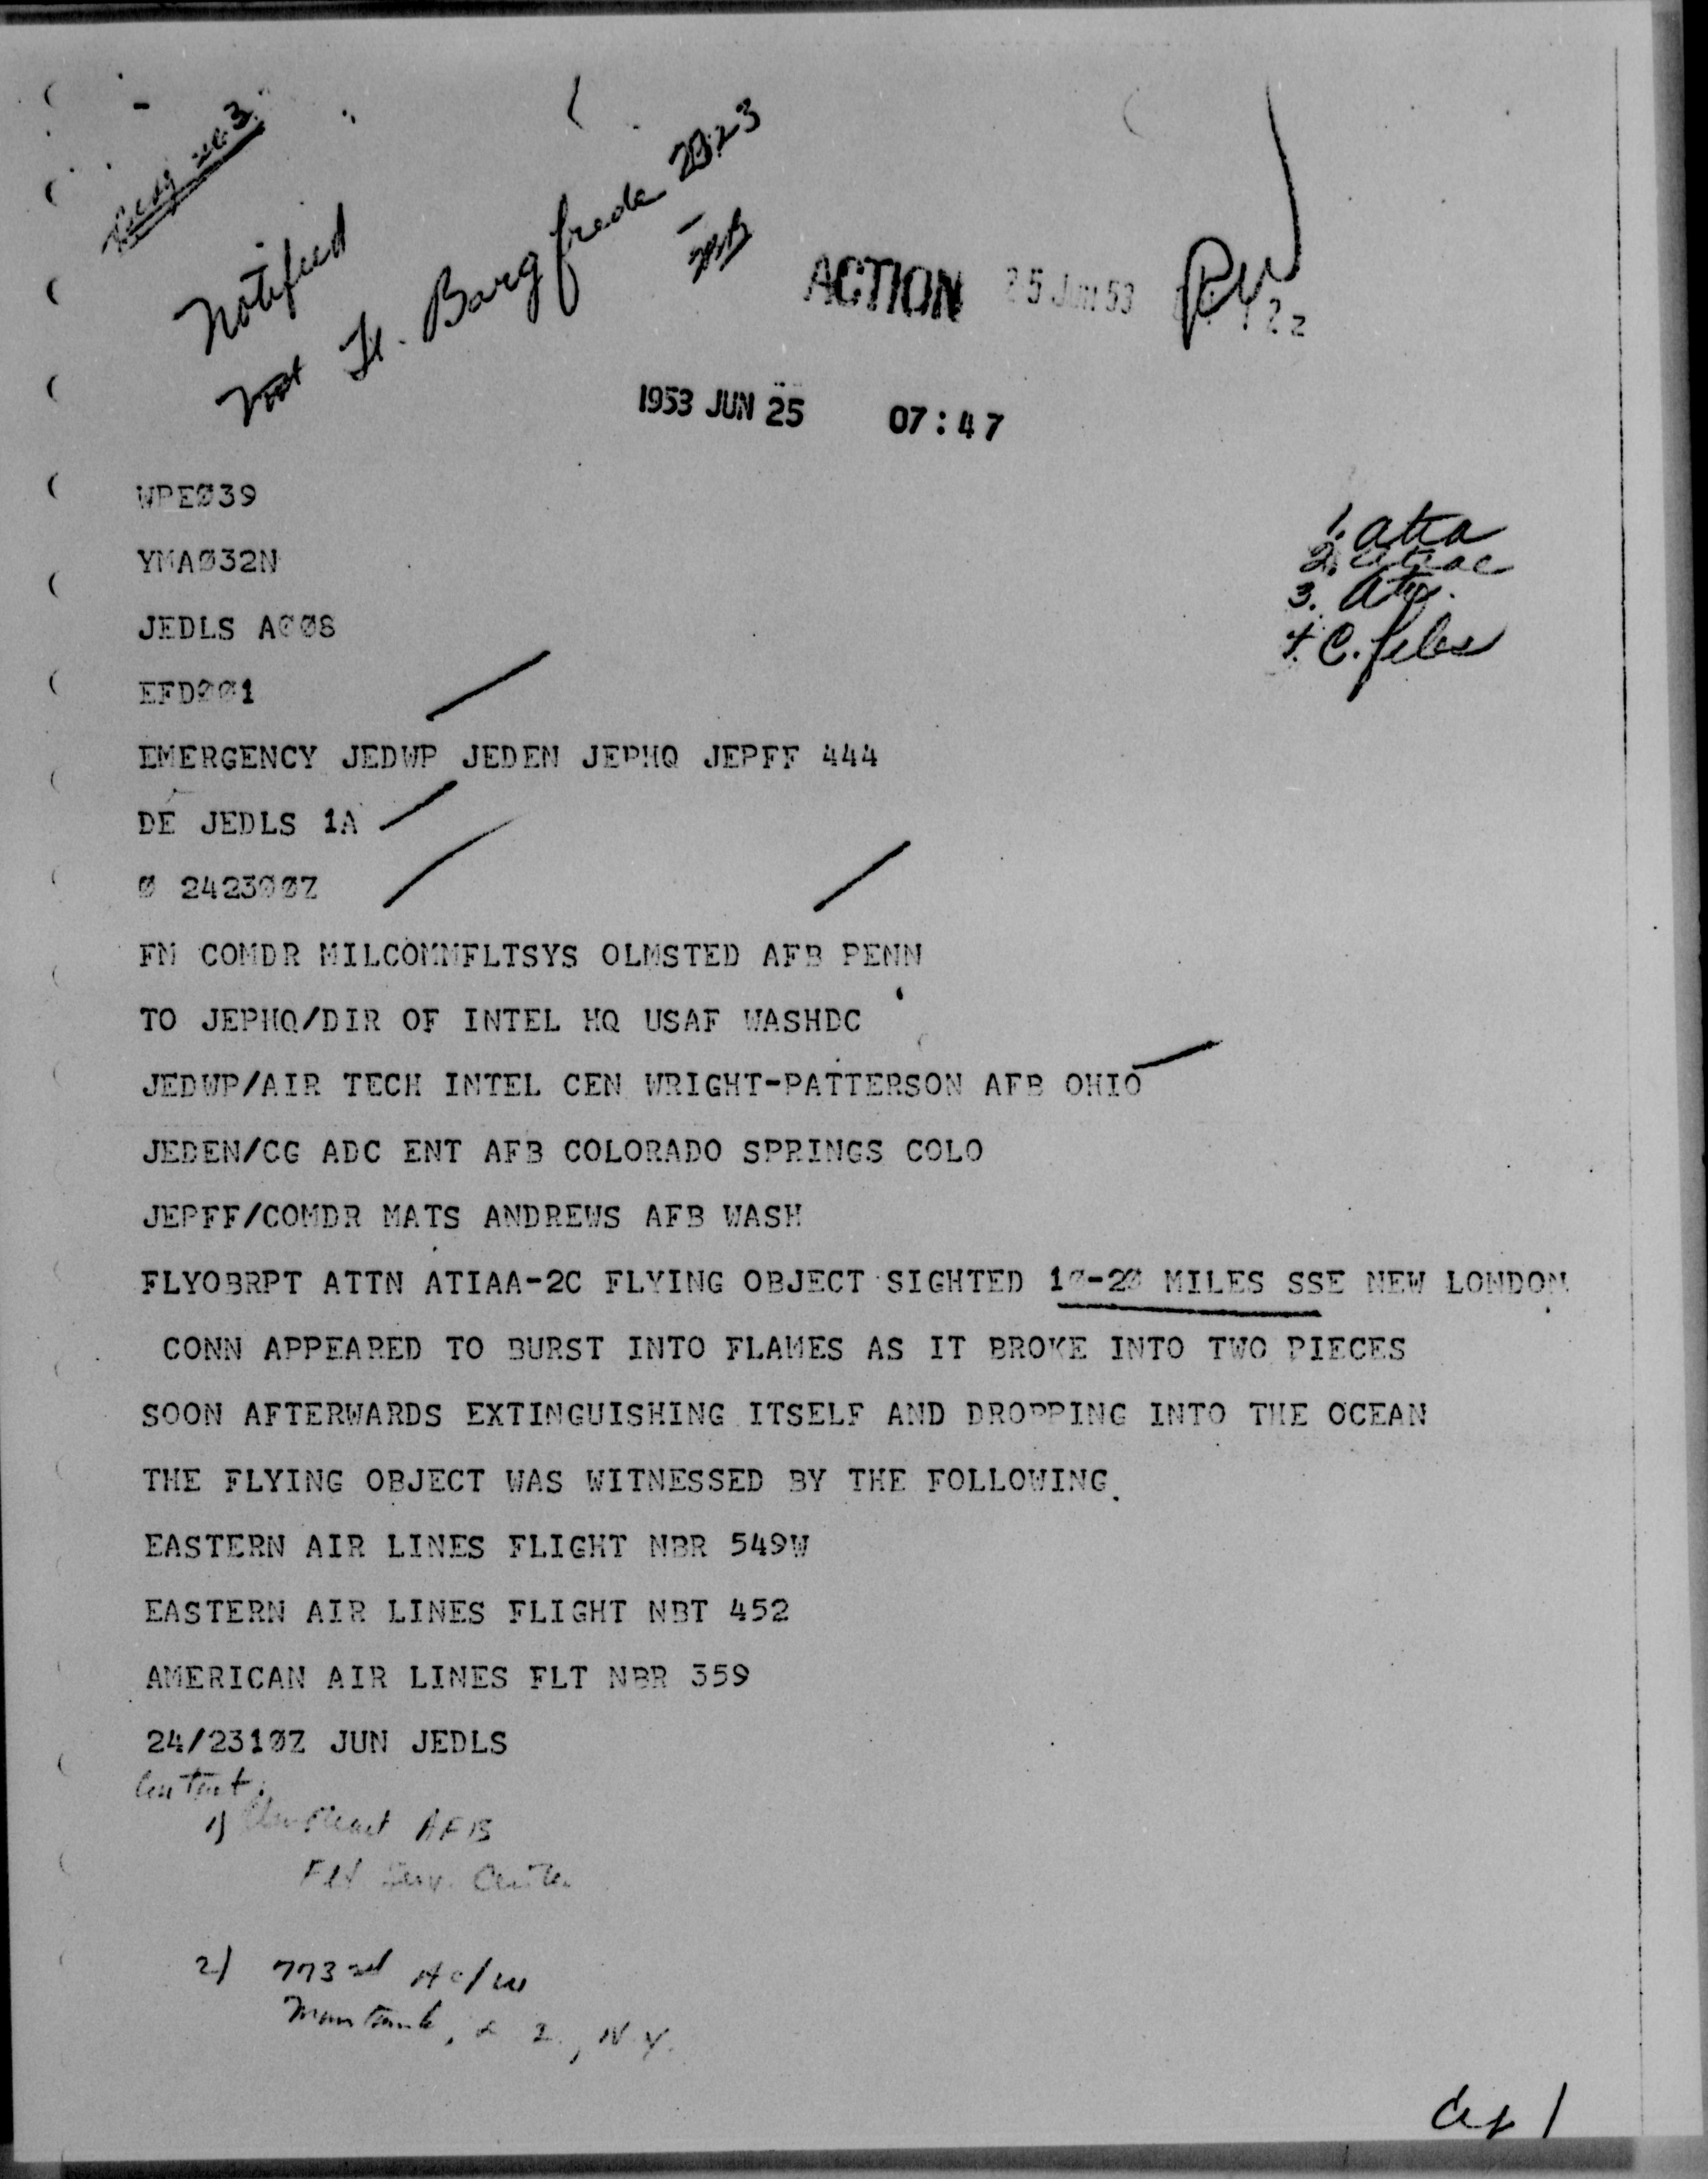 Notified
Lt. Bargfrede 2023
ACTION 25 Jun 53
1953 JUN 25 07:47
WPEØ39
YMAØ32N
1. atia
JEDLS AØØ8
3.
4. C. files
EFDØØ1
EMERGENCY JEDWP JEDEN JEPHQ JEPFF 444
DE JEDLS 1A
Ø 2423ØØZ
FM COMDR MILCOMMFLTSYS OLMSTED AFB PENN
TO JEPHQ/DIR OF INTEL HQ USAF WASHDC
JEDWP/AIR TECH INTEL CEN WRIGHT-PATTERSON AFB OHIO
JEDEN/CG ADC ENT AFB COLORADO SPRINGS COLO
JEPFF/COMDR MATS ANDREWS AFB WASH
FLYOBRPT ATTN ATIAA-2C FLYING OBJECT SIGHTED 1Ø-2Ø MILES SSE NEW LONDON
CONN APPEARED TO BURST INTO FLAMES AS IT BROKE INTO TWO PIECES
SOON AFTERWARDS EXTINGUISHING ITSELF AND DROPPING INTO THE OCEAN
THE FLYING OBJECT WAS WITNESSED BY THE FOLLOWING.
EASTERN AIR LINES FLIGHT NBR 549W
EASTERN AIR LINES FLIGHT NBT 452
AMERICAN AIR LINES FLT NBR 359
24/231ØZ JUN JEDLS
Contact:
1) AFB
Flt Serv. Center
2) 773rd AC/W
Montauk, L I, N.Y.